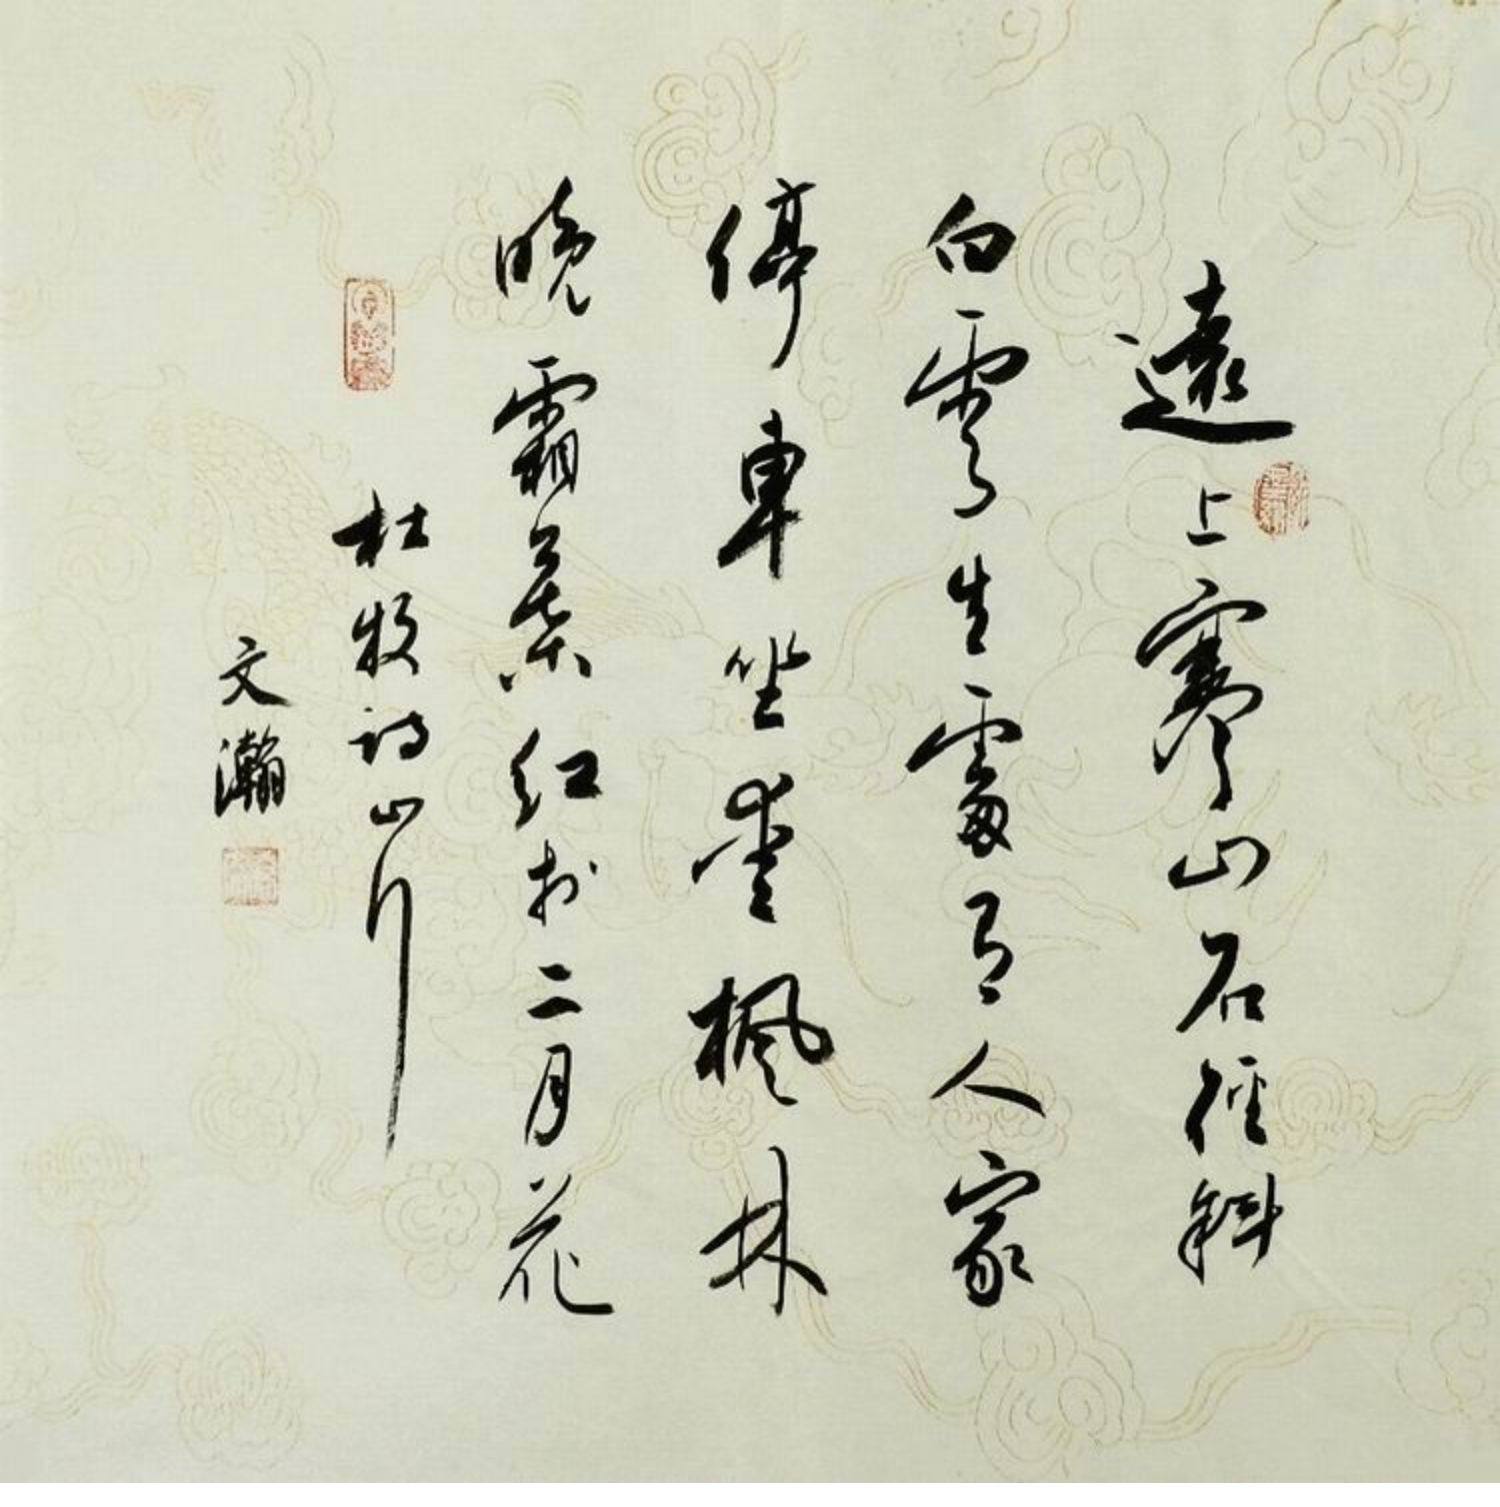 遠上寒山石徑斜
白雲生處有人家
停車坐愛楓林
晚霜葉紅於二月花
杜牧詩山行
文瀚